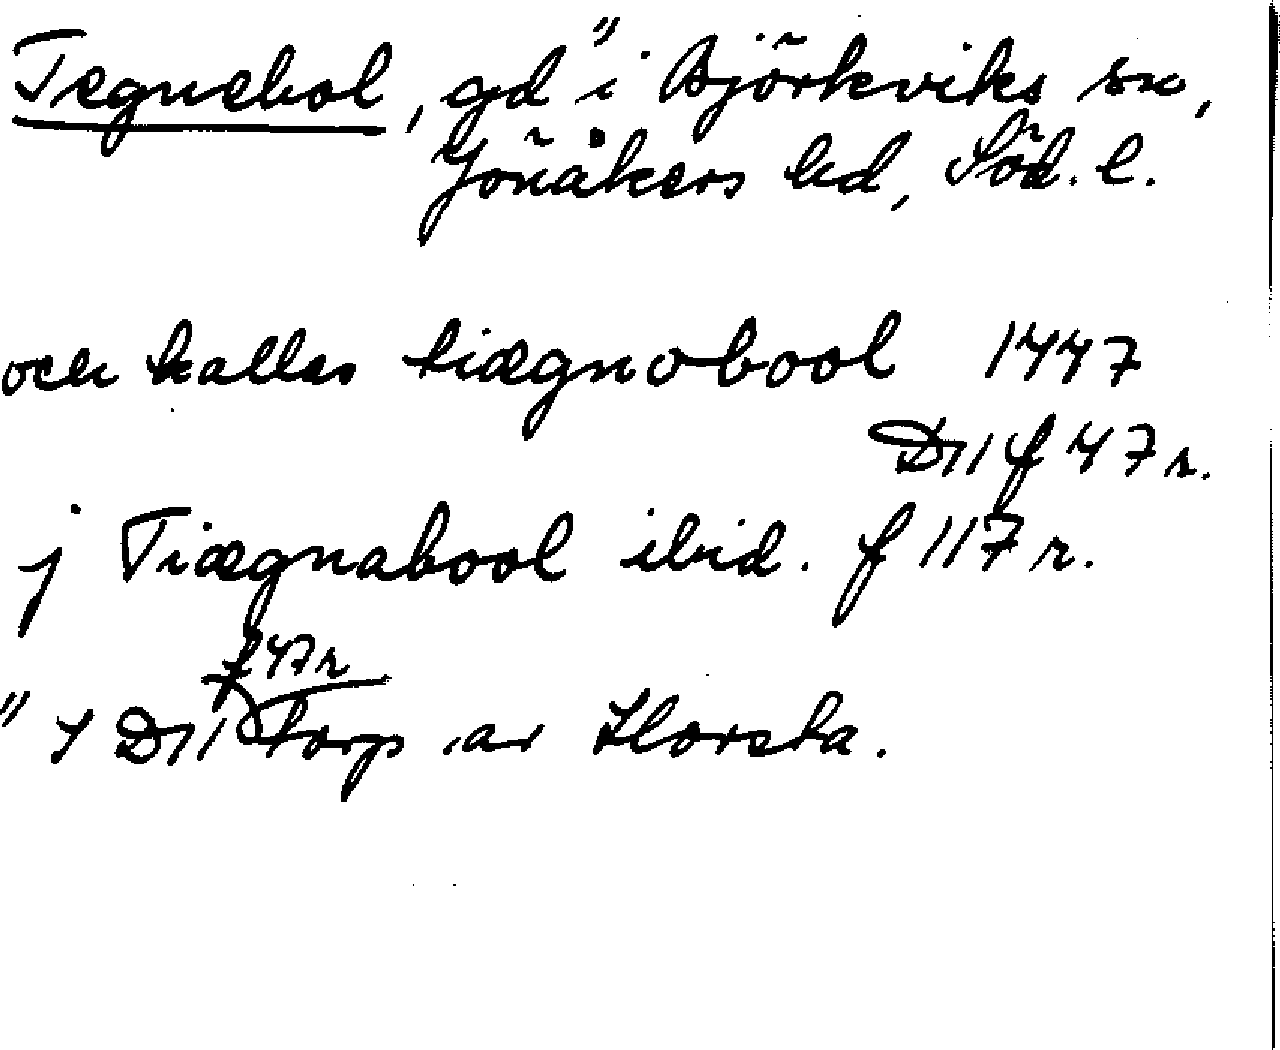 Tegnebol, gd " i Björkviks sn,
Jönåkers hd, Söd. l.
och kallas tiægnobool 1447
D 11 f 47 r.
j Tiægnabool ibid. f 117 r.
f 47 r
" I D 11 torp av Horsta.